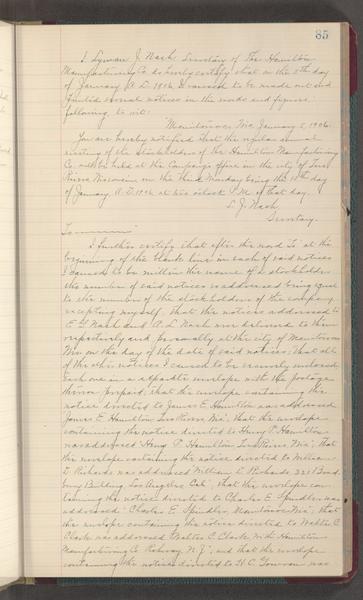 85
I Lyman J. Nash Secretary of The Hamilton
Manufacturing Co. do hereby certify that on the 5th day
of January A.D. 1906 I caused to be made out and
several notices in the words and figures
following to wit:
Manitowoc, Wis, January 5, 1906.
You are hereby notified that the regular annual
meeting of the Stockholders of the Hamilton Manufacturing
Co. will be held at the Company's office in the city of Two
Rivers Wisconsin on the third Monday being the 15th day
of January A.D. 1906 at two o'clock P.M. of that day.
L. J. Nash
Secretary.
To
I further certify that after the word "To" at the
beginning of the blank line in each of said notices
I caused to be written the name of a stockholder
the number of said notices so addressed being equal
to the number of the stockholders of the company
excepting myself; that the notices addressed to
E. G. Nash and A. L. Nash were delivered to them
respectively and personally at the city of Manitowoc
Wis on the day of the date of said notices; that all
of the other notices I caused to be securely enclosed
each one in a separate envelope with the postage
thereon prepaid; that the envelope containing the
notice directed to James E. Hamilton was addressed
James E. Hamilton Two Rivers, Wis; that the envelope
containing the notice directed to Henry P. Hamilton
was addressed Henry P. Hamilton, Two Rivers, Wis; that
the envelope containing the notice directed to William
D. Richards was addressed William D. Richards 321
Building Los Angeles Cal; that the envelope con-
taining the notice directed to Charles E. Spindler was
addressed Charles E. Spindler, Manitowoc Wis; that
the envelope containing the notice directed to Walter C.
Clark was addressed Walter C. Clark with Hamilton
Manufacturing Co Rahway N. J.; and that the envelope
containing the notice directed to H. C. was